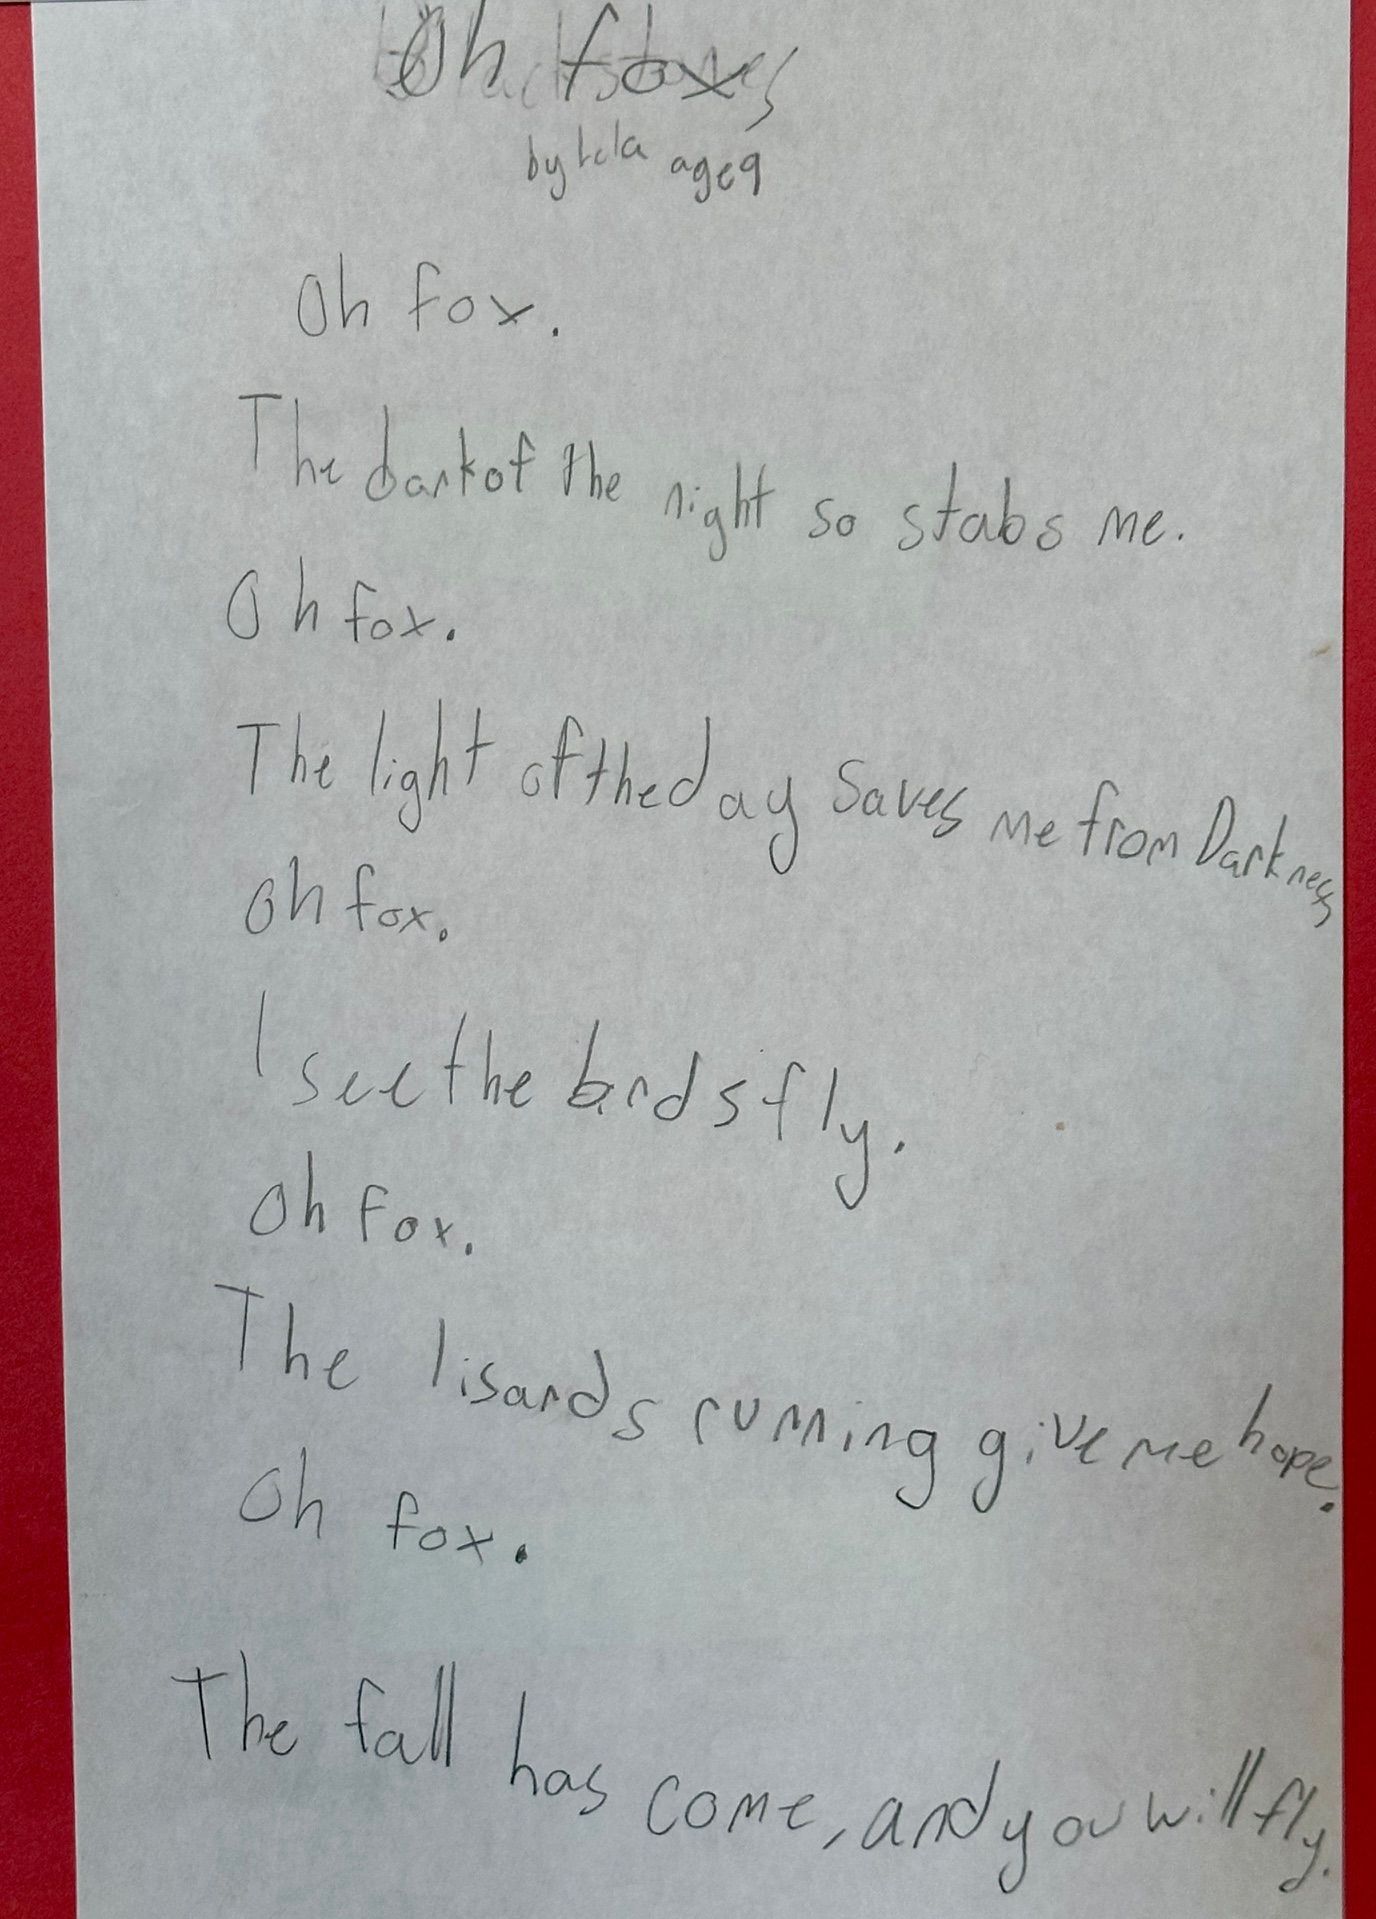 Oh fox
by Lela age 9
Oh fox.
The dark of the night so stabs me.
Oh fox.
The light of the day saves me from Darkness
Oh fox.
I see the birds fly.
Oh fox.
The lisards running give me hope.
Oh fox.
The fall has come, and you will fly.